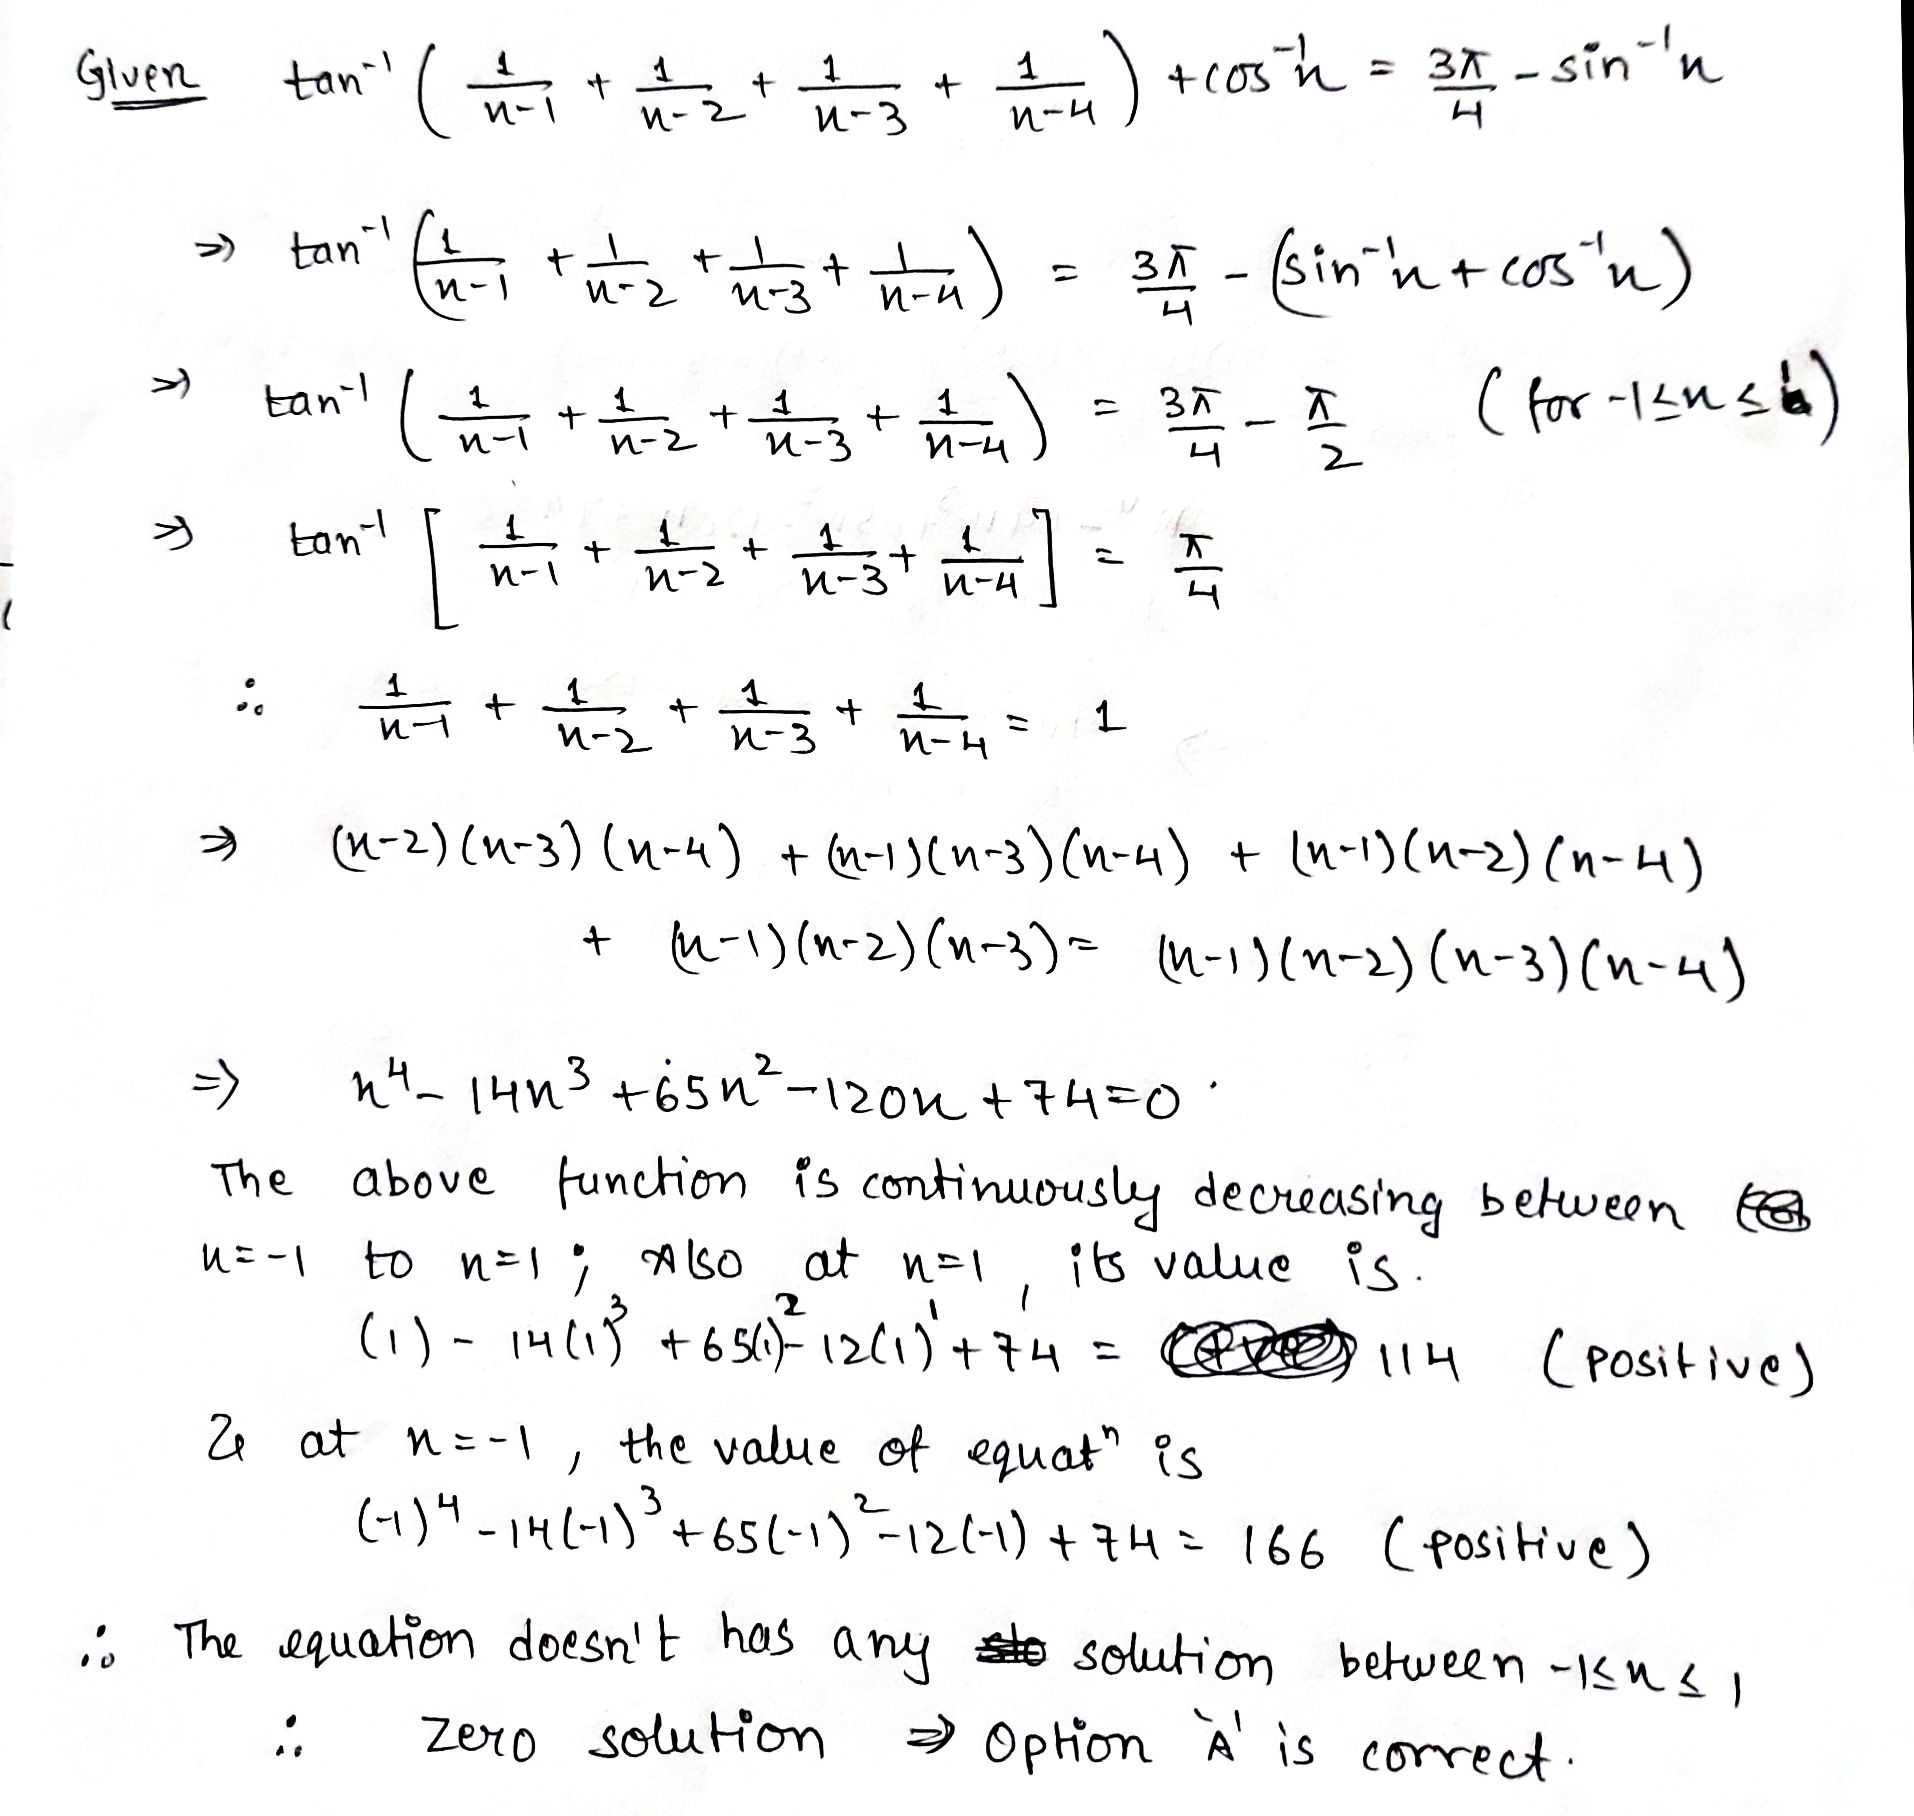 Given tan⁻¹ ( 1/(x-1) + 1/(x-2) + 1/(x-3) + 1/(x-4) ) + cos⁻¹x = 3π/4 - sin⁻¹x
⇒ tan⁻¹ ( 1/(x-1) + 1/(x-2) + 1/(x-3) + 1/(x-4) ) = 3π/4 - (sin⁻¹x + cos⁻¹x)
⇒ tan⁻¹ ( 1/(x-1) + 1/(x-2) + 1/(x-3) + 1/(x-4) ) = 3π/4 - π/2 ( for -1≤x≤1)
⇒ tan⁻¹ [ 1/(x-1) + 1/(x-2) + 1/(x-3) + 1/(x-4) ] = π/4
∴ 1/(x-1) + 1/(x-2) + 1/(x-3) + 1/(x-4) = 1
⇒ (x-2)(x-3)(x-4) + (x-1)(x-3)(x-4) + (x-1)(x-2)(x-4)
+ (x-1)(x-2)(x-3) = (x-1)(x-2)(x-3)(x-4)
⇒ x⁴ - 14x³ + 65x² - 120x + 74 = 0.
The above function is continuously decreasing between
x=-1 to x=1 ; Also at x=1, its value is.
(1) - 14(1)³ + 65(1)² - 12(1)¹ + 74 = 114 (positive)
& at x=-1, the value of equatⁿ is
(-1)⁴ - 14(-1)³ + 65(-1)² - 12(-1) + 74 = 166 (positive)
∴ The equation doesn't has any solution between -1≤x≤1
∴ zero solution ⇒ Option 'A' is correct.